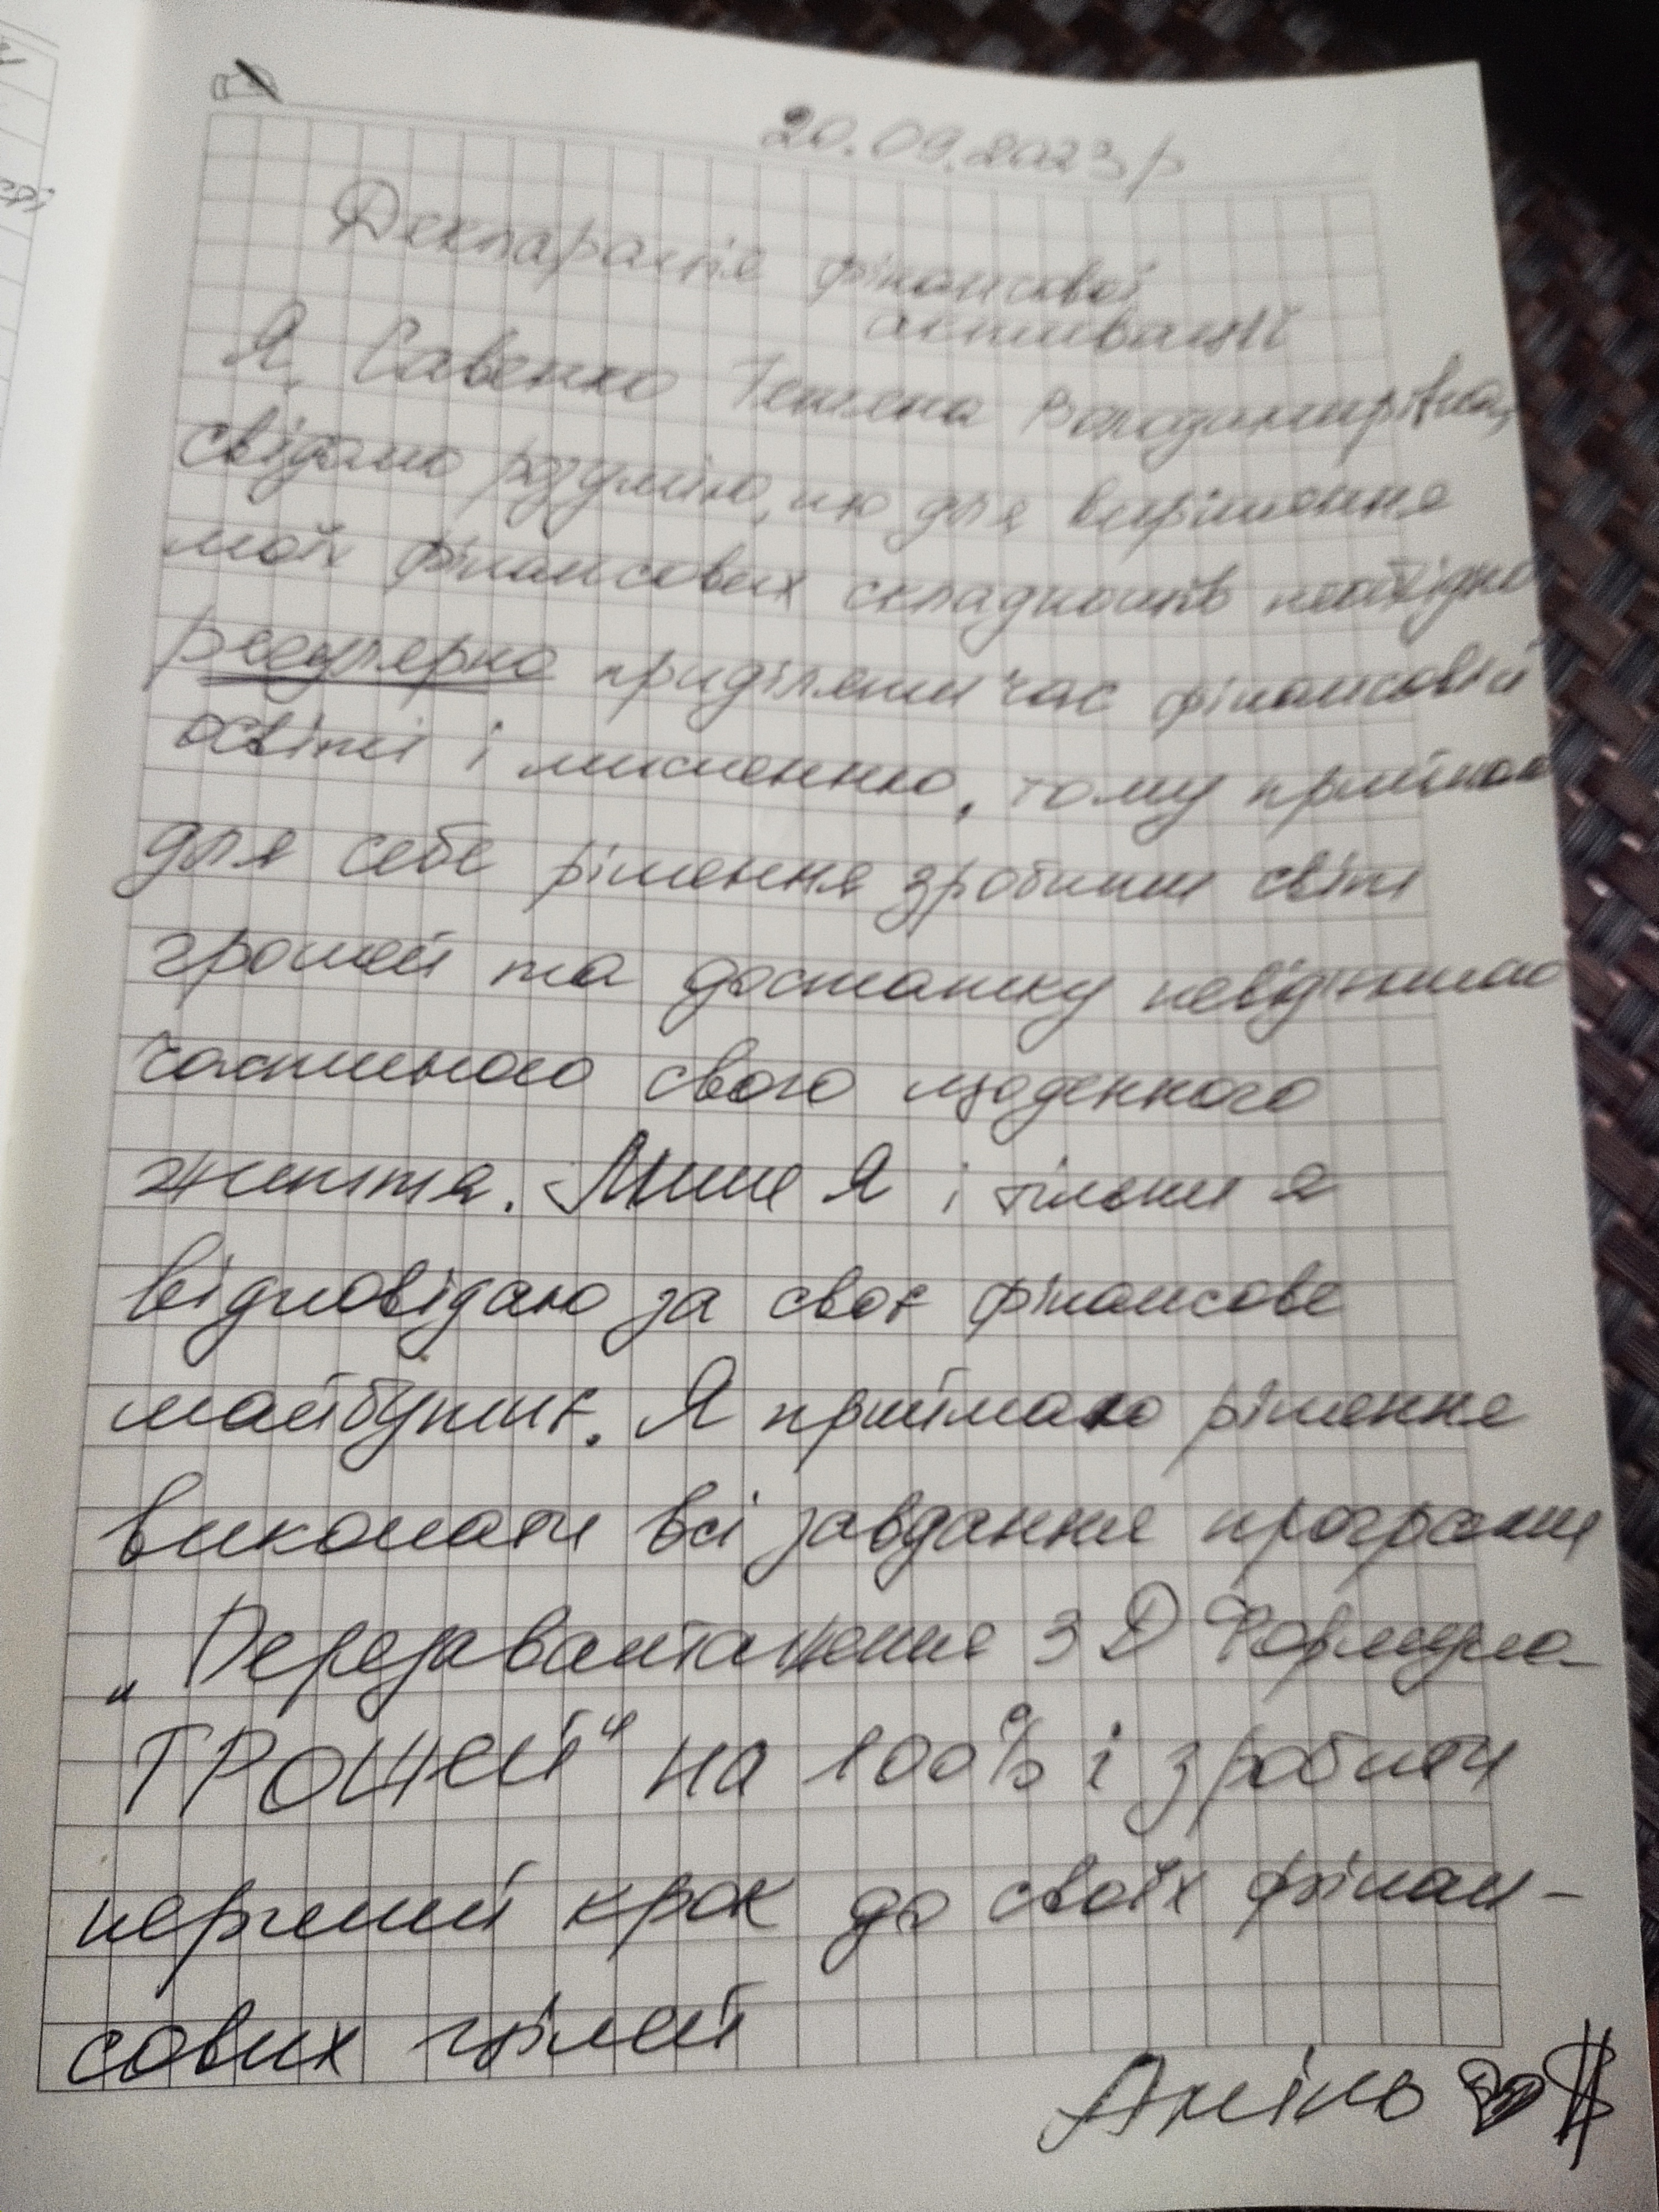 20.09.2023р
Декларація фінансової
активації
Я, Савенко Тетяна Володимирівна,
свідомо розумію, що для вирішення
моїх фінансових складностів необхідно
регулярно приділяти час фінансовій
освіті і мисленню, тому приймаю
для себе рішення зробити світ
грошей та достатку невід'ємною
частиною свого щоденного
життя. Лише Я і тільки я
відповідаю за своє фінансове
майбутнє. Я приймаю рішення
виконати всі завдання програми
„Перезавантаження 3D Формула-
ГРОШЕЙ" на 100% і зробити
перший крок до своїх фінан-
сових цілей
Амінь $